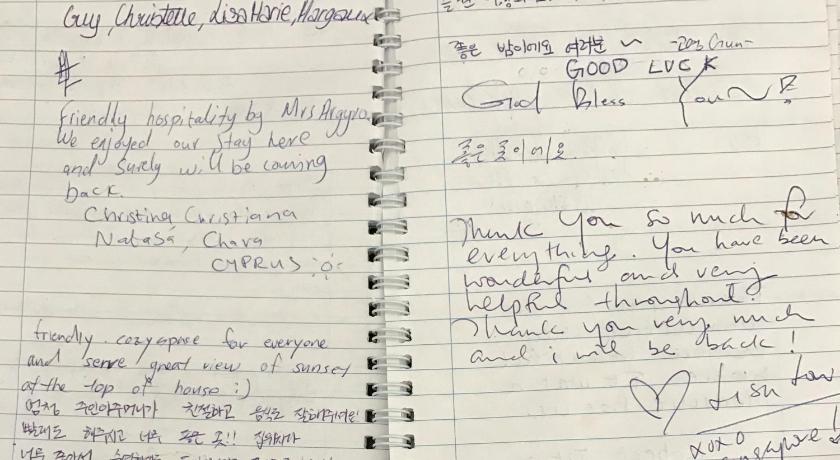 Guy, Christelle, LisaMarie, Margaux
#
Friendly hospitality by Mrs Argyro.
We enjoyed our stay here
and surely will be coming
back.
Christina Christiana
Natasa, Chara
CYPRUS
friendly cozyspase for everyone
and serve great view of sunset
at the top of house :)
엄청 주인아주머니가 친절하고 음식도 잘해주셔요!
빨래도 해주시고 너무 좋은 곳!!
너무 좋아서
좋은 밤이에요 여러분 ~
GOOD LUCK
God Bless You~!
좋은 곳이에요.
Thank you so much for
everything. You have been
wonderful and very
helpful throughout.
Thank you very much
and i will be back!
xoxo